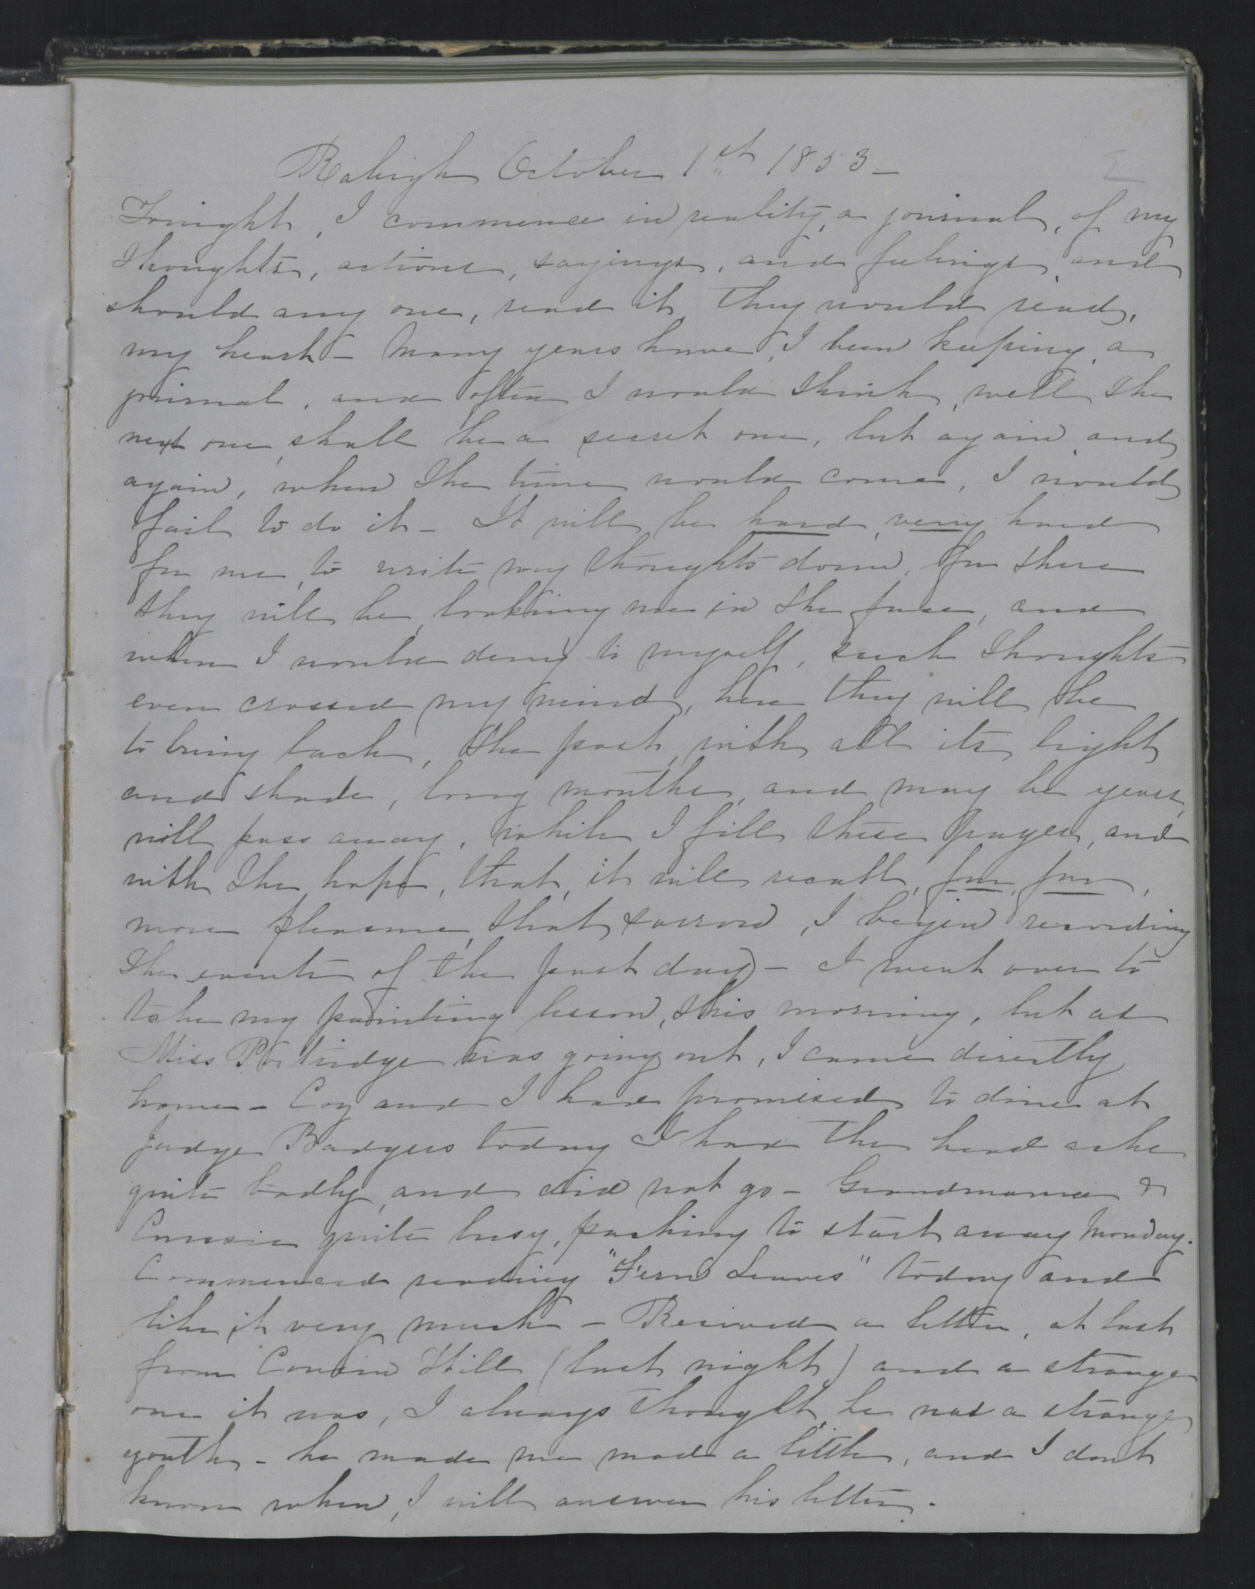 Raleigh October 1st 1853 –
Tonight, I commence in reality, a journal, of my
thoughts, actions, sayings, and feelings, and
should any one, read it, they would read,
my heart – Many years have, I been keeping, a
journal, and often I would think, well the
next one, shall be a secret one, but again, and
again, when the time would come, I would
fail to do it – It will, be hard, very hard
for me, to write my thoughts down, for there
they will be, looking me in the face, and
when I would deny to myself, such thoughts
ever crossed my mind, here they will be
to bring back, the past, with all its light
and shade, long months, and may be years,
will pass away, while I fill these pages, and
with the hope, that, it will recall, far, far,
more pleasure, that sorrow, I begin recording
the events of the past day – I went over to
take my painting lesson, this morning, but as
Miss Partridge was going out, I came directly
home – Coz and I had promised to dine at
Judge Badgers today I had the head ache
quite badly, and did not go – Grandmama &
quite busy, packing to start away Monday.
Commenced reading "Fern Leaves" today and
like it very much – Received a letter, at last
from Cousin Will (last night) and a strange
one it was, I always thought, he was a strange
youth – he made me mad a little, and I dont
know when, I will answer his letter.